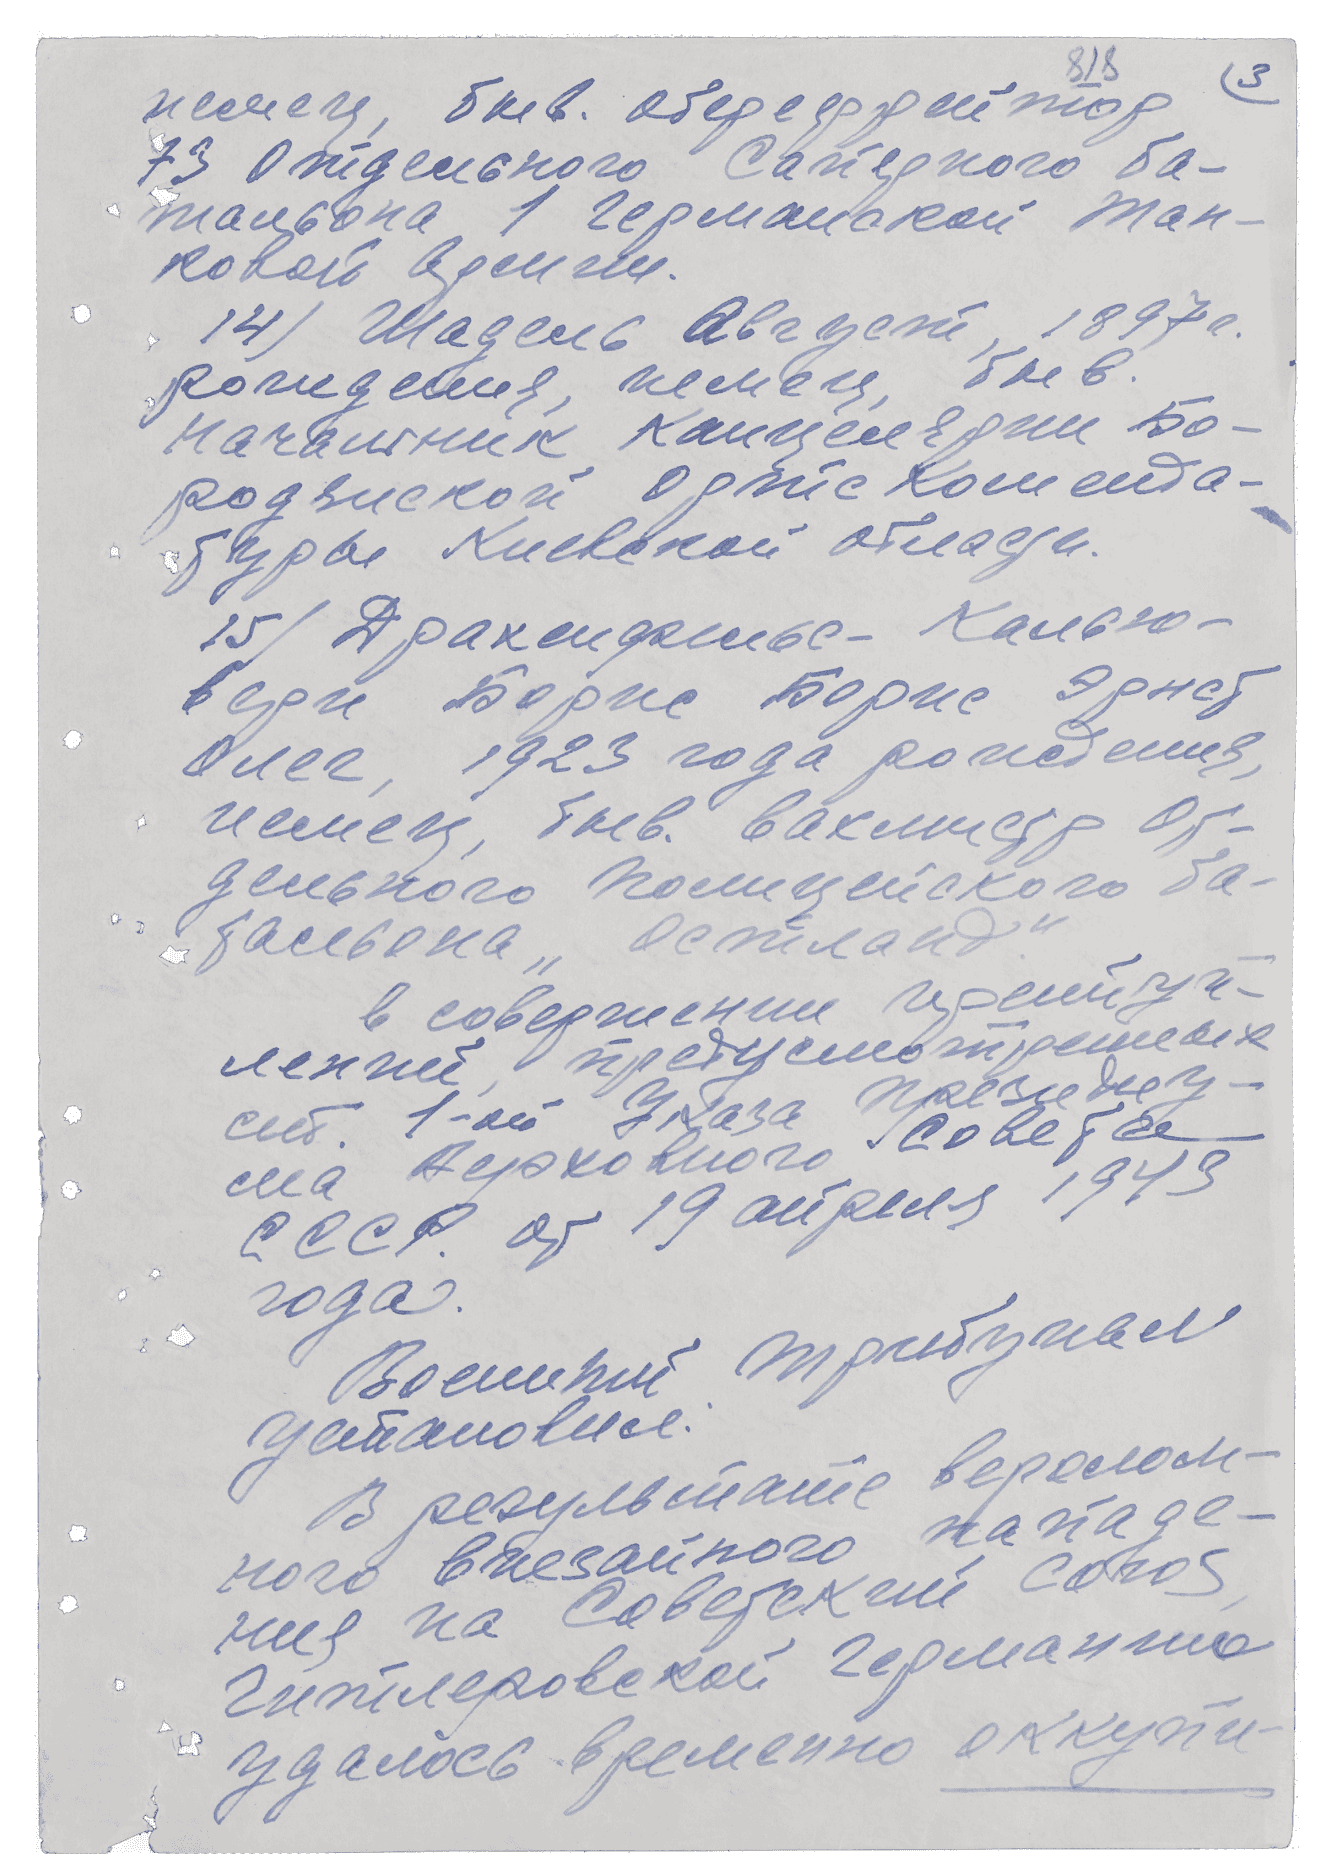 818
3
немец, быв. оберефрейтор
73 Отдельного Саперного ба-
тальона 1 Германской тан-
ковой армии.
14/ Шадель Август, 1897 г.
рождения, немец, быв.
Начальник Канцелярии Бо-
родянской Ортскоменда-
туры Киевской области.
15/ Драхенфельс- Кальюо-
вери Борис Борис Эрнст
Олег, 1923 года рождения,
немец, быв. вахмистр От-
дельного Полицейского ба-
тальона „Остланд"
в совершении преступ-
лений, предусмотренных
ст. 1-ой Указа Президиу-
ма Верховного Совета
СССР. от 19 апреля 1943
года.
Военный трибунал
установил:
В результате веролом-
ного внезапного нападе-
ния на Советский Союз,
Гитлеровской Германию
удалось временно оккупи-